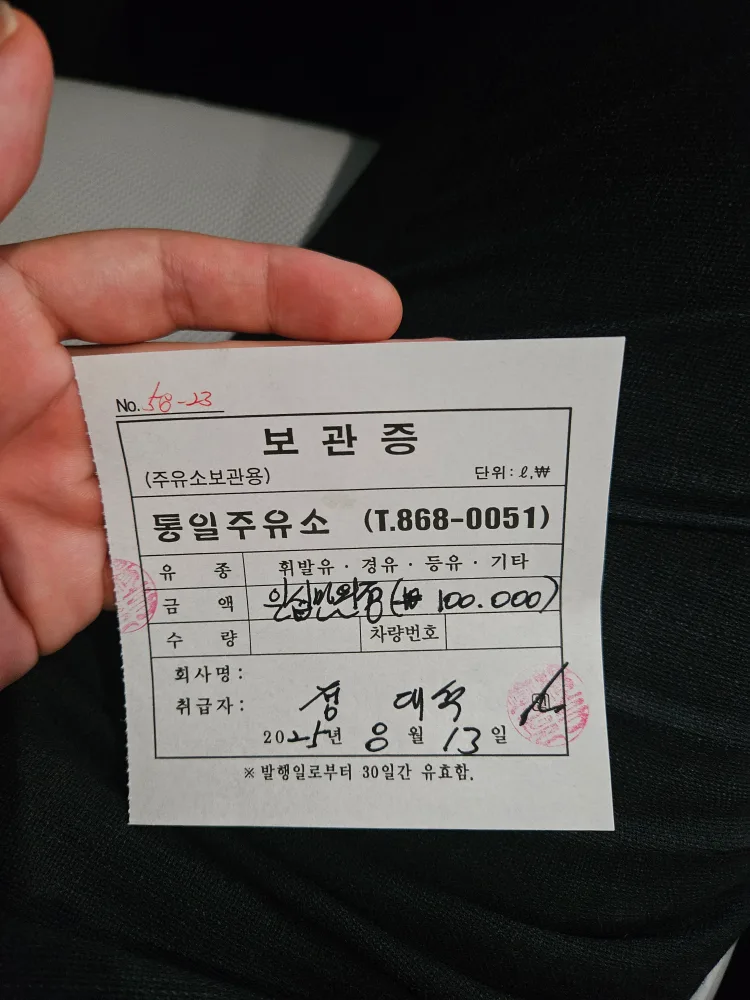 No. 58-23
보관증
(주유소보관용) 단위: ℓ,₩
통일주유소 (T.868-0051)
유 종 휘발유 · 경유 · 등유 · 기타
금 액 일십만원정(₩ 100.000)
수 량 차량번호
회사명:
취급자: 정
2025년 8월 13일
※ 발행일로부터 30일간 유효함.